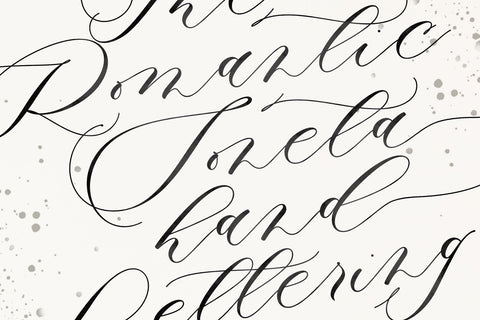 The
Romantic
hand
Lettering